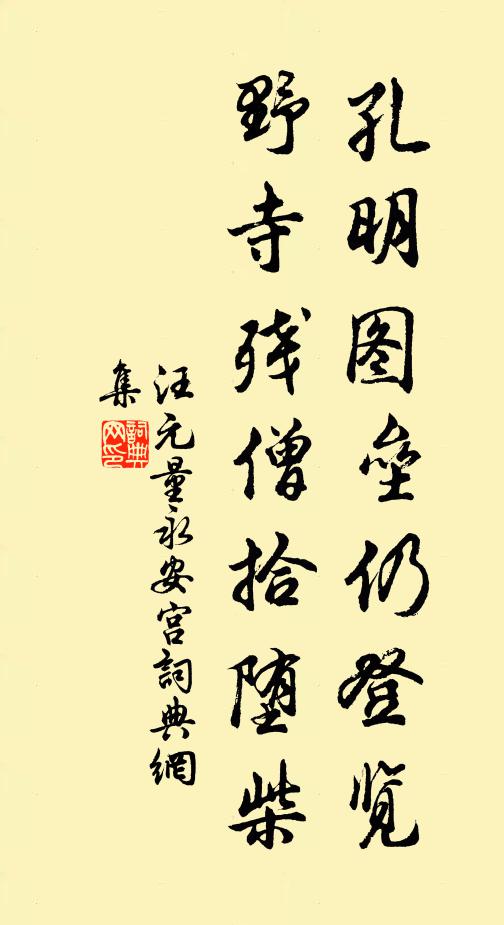 孔明图垒仍登览
野寺残僧拾堕柴
汪元量永安宫詞典網
集
詞典網印